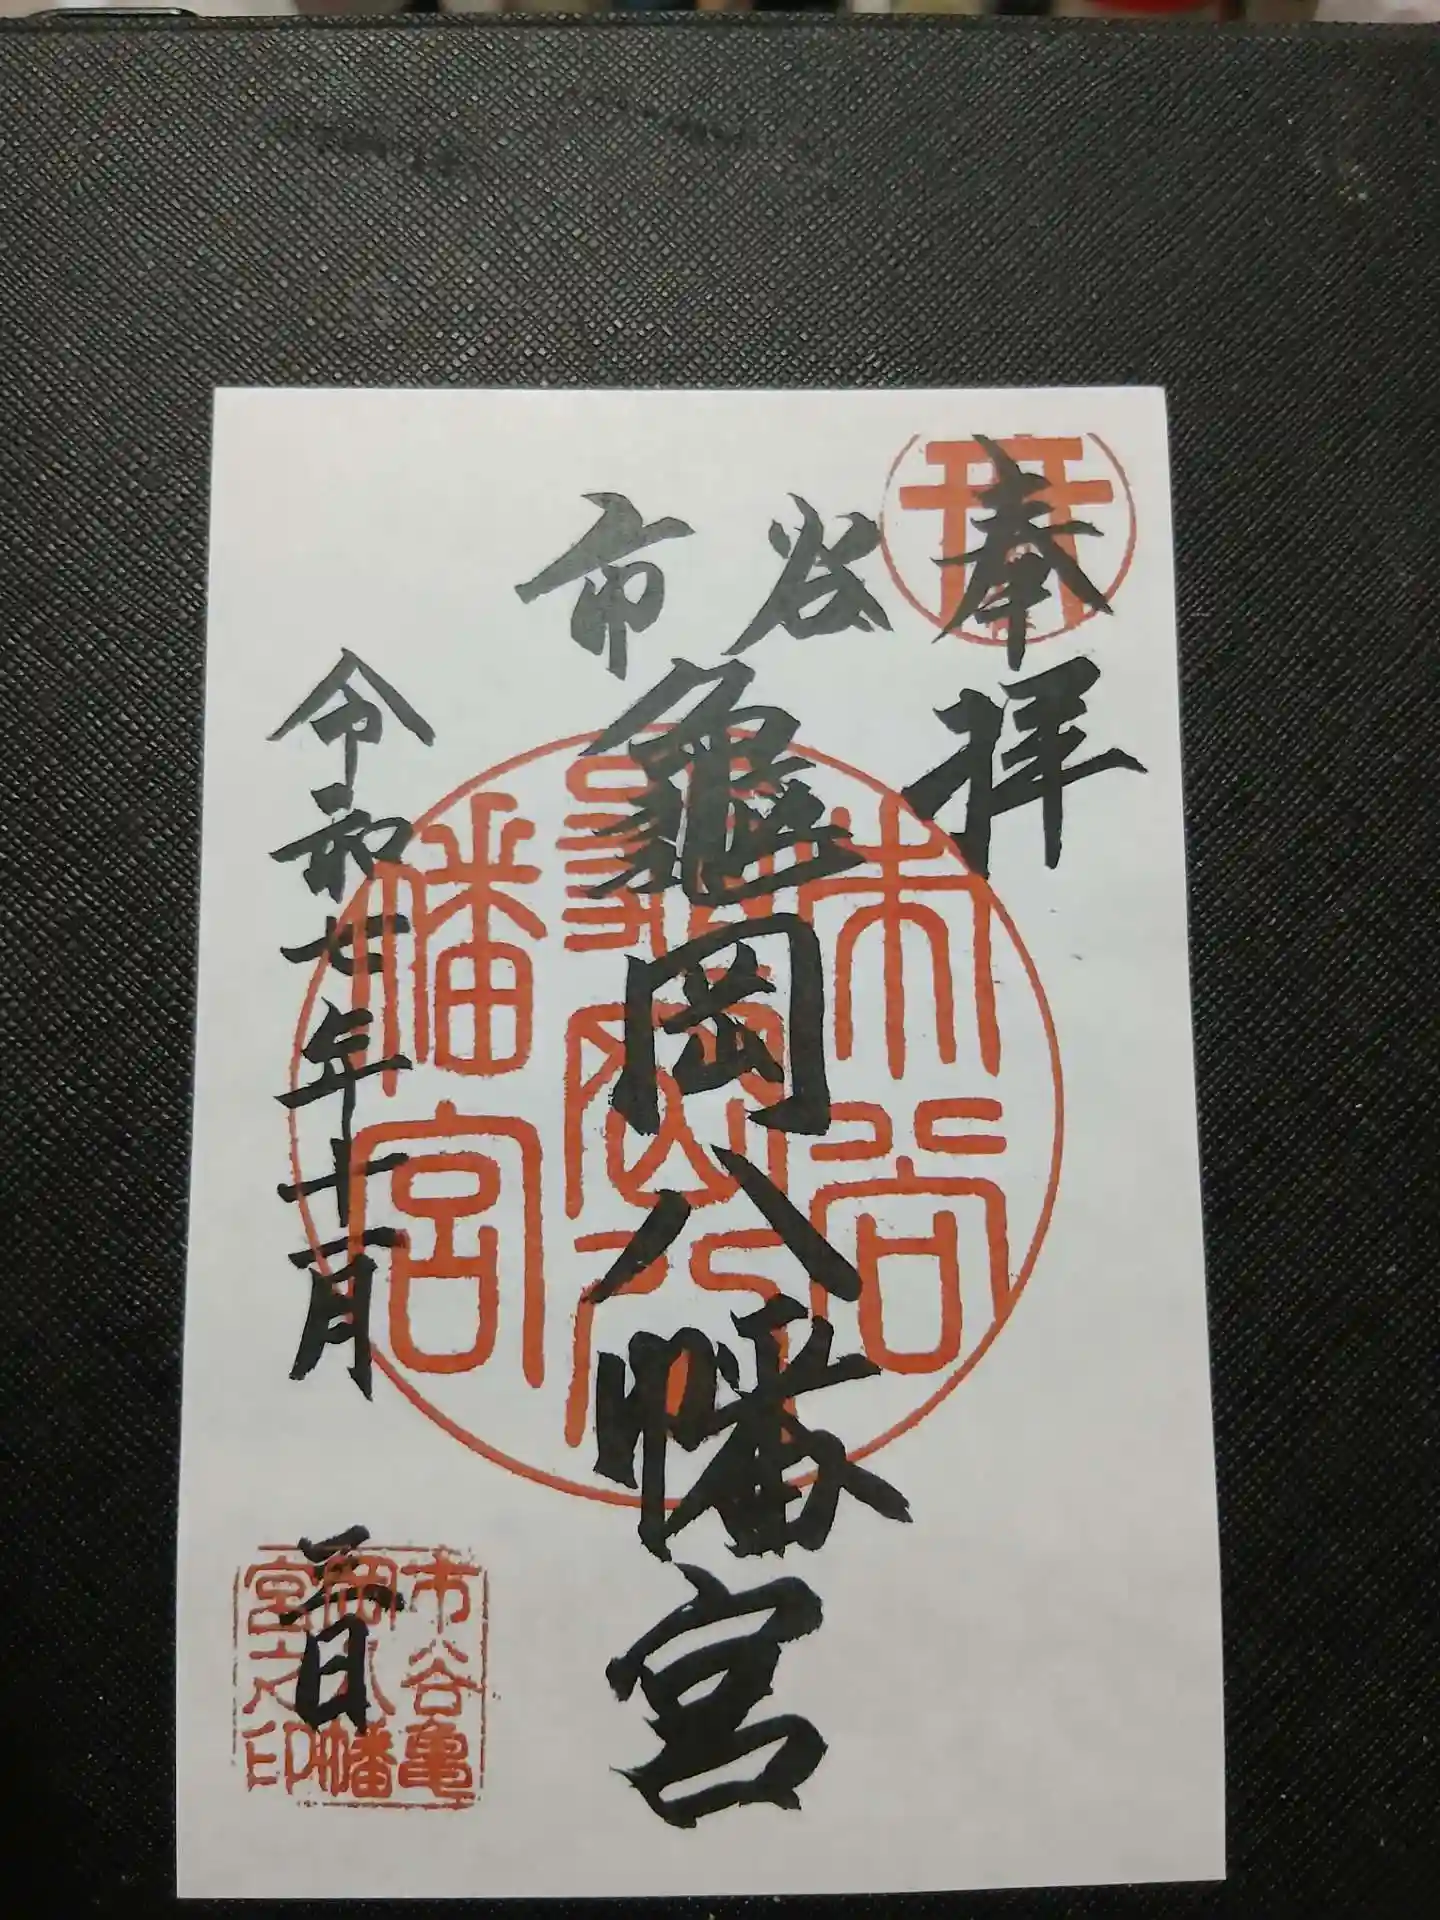 奉拝
市谷
龜岡八幡宮
令和七年十一月三日
市谷
亀岡八
幡宮
市谷亀
岡八幡
宮之印